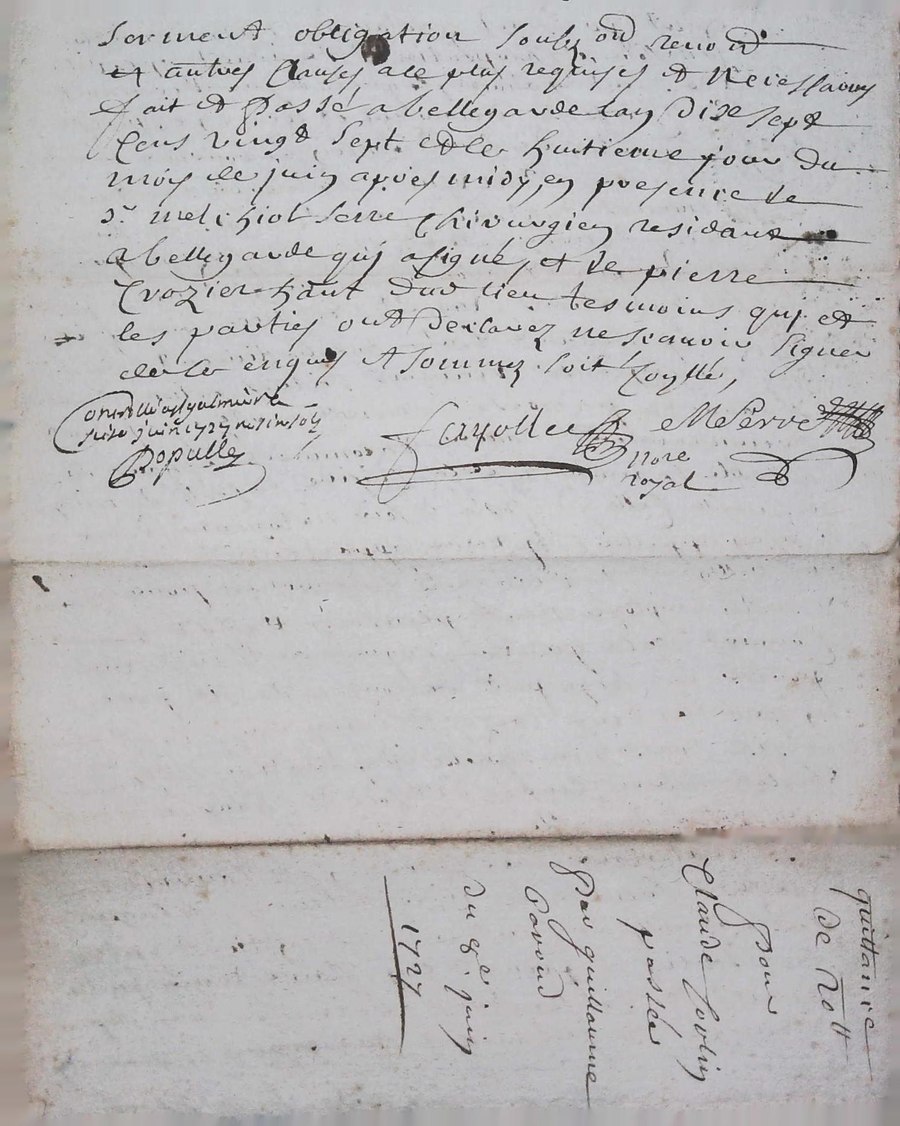 serment obligation
et autres clauses ale plus requises et necessaires
fait et passé a bellegarde lan dixe sept
cens vingt sept et le huitieme jour du
mois de juin apres midy, en presence de
Sr melchiol serre chirurgien residant
a bellegarde qui a signé, et de pierre
Crozier hant dud lieu tesmoins qui et
les parties ont declarez ne scavoir signer
de ce enquis et sommez soit
juin 1727
Fayolle MSerre
nore
royal
quittance
de
pour
Claude
passée
Par guillaume
du 8e juin
1727